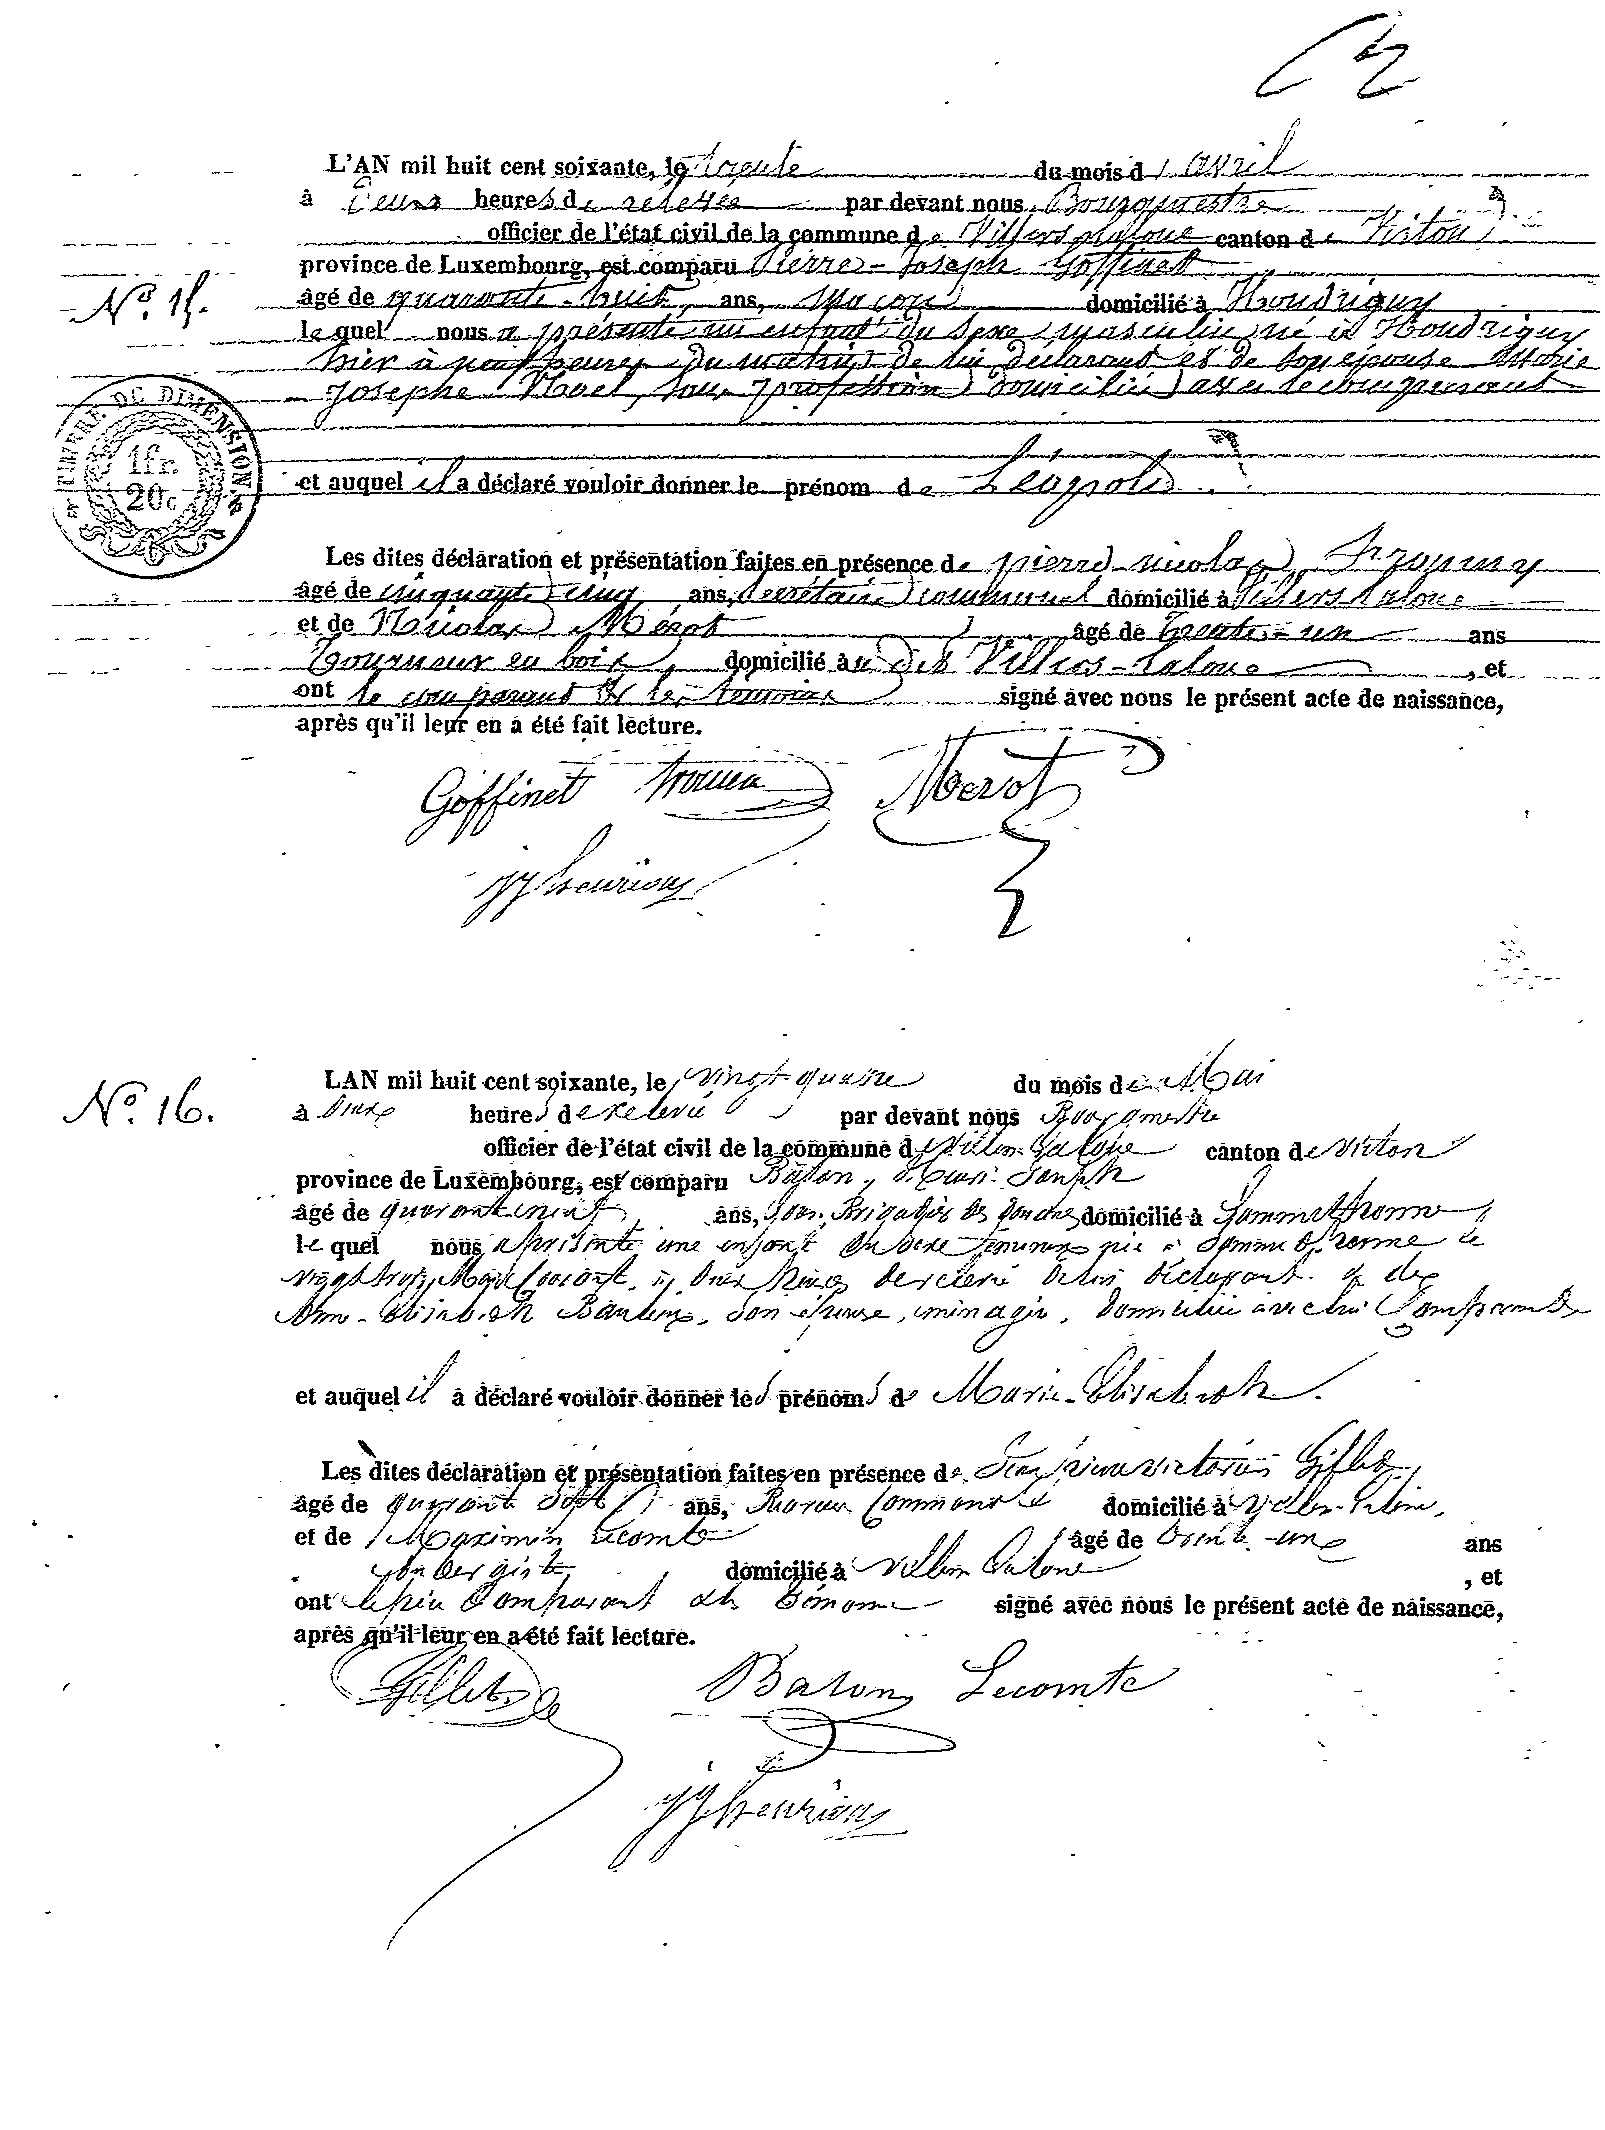 L'AN mil huit cent soixante, le trente du mois d'avril
à deux heures de relevée par devant nous Bourgmestre
officier de l'état civil de la commune de Villers-la-loue canton de Virton
province de Luxembourg, est comparu Pierre-Joseph Goffinet
No. 15.
âgé de quarante-huit, ans, Maçon domicilié à Houdrigny
le quel nous a présenté un enfant du sexe masculin né à Houdrigny
hier à neuf heures du matin de lui déclarant et de son épouse Marie
Josephe Noël, sans profession domiciliée avec le comparant
TIMBRE DE DIMENSION
1 fr.
20 c
et auquel il a déclaré vouloir donner le prénom de Léopold
Les dites déclaration et présentation faites en présence de pierre-nicolas
âgé de cinquante cinq ans, secrétaire communal domicilié à Villers-la-loue
et de Nicolas Mérot âgé de trente-un ans
Tourneur en bois, domicilié au dit Villers-la-loue, et
ont le comparant et les témoins signé avec nous le présent acte de naissance,
après qu'il leur en a été fait lecture.
Goffinet Merot
No. 16.
LAN mil huit cent soixante, le vingt-quatre du mois de Mai
à deux heures de relevée par devant nous Bourgmestre
officier de l'état civil de la commune de Villers-la-loue canton de Virton
province de Luxembourg, est comparu Joseph
âgé de ans, Sous Brigadier des douanes domicilié à Sommethonne
le quel nous a présenté une enfant du sexe féminin née à Sommethonne le
vingt trois Mai courant, à deux heures de relevé de lui déclarant et de
Elisabeth son épouse, ménagère, domiciliée avec lui Comparant
et auquel il a déclaré vouloir donner les prénoms de Marie-Elisabeth.
Les dites déclaration et présentation faites en présence de Gillet,
âgé de quarante sept ans, Receveur Communal domicilié à Villers-la-loue,
et de Maximin Lecomte âgé de trente-une ans
aubergiste domicilié à Villers-la-loue, et
ont le père Comparant et les témoins signé avec nous le présent acte de naissance,
après qu'il leur en a été fait lecture.
Gillet Baton Lecomte